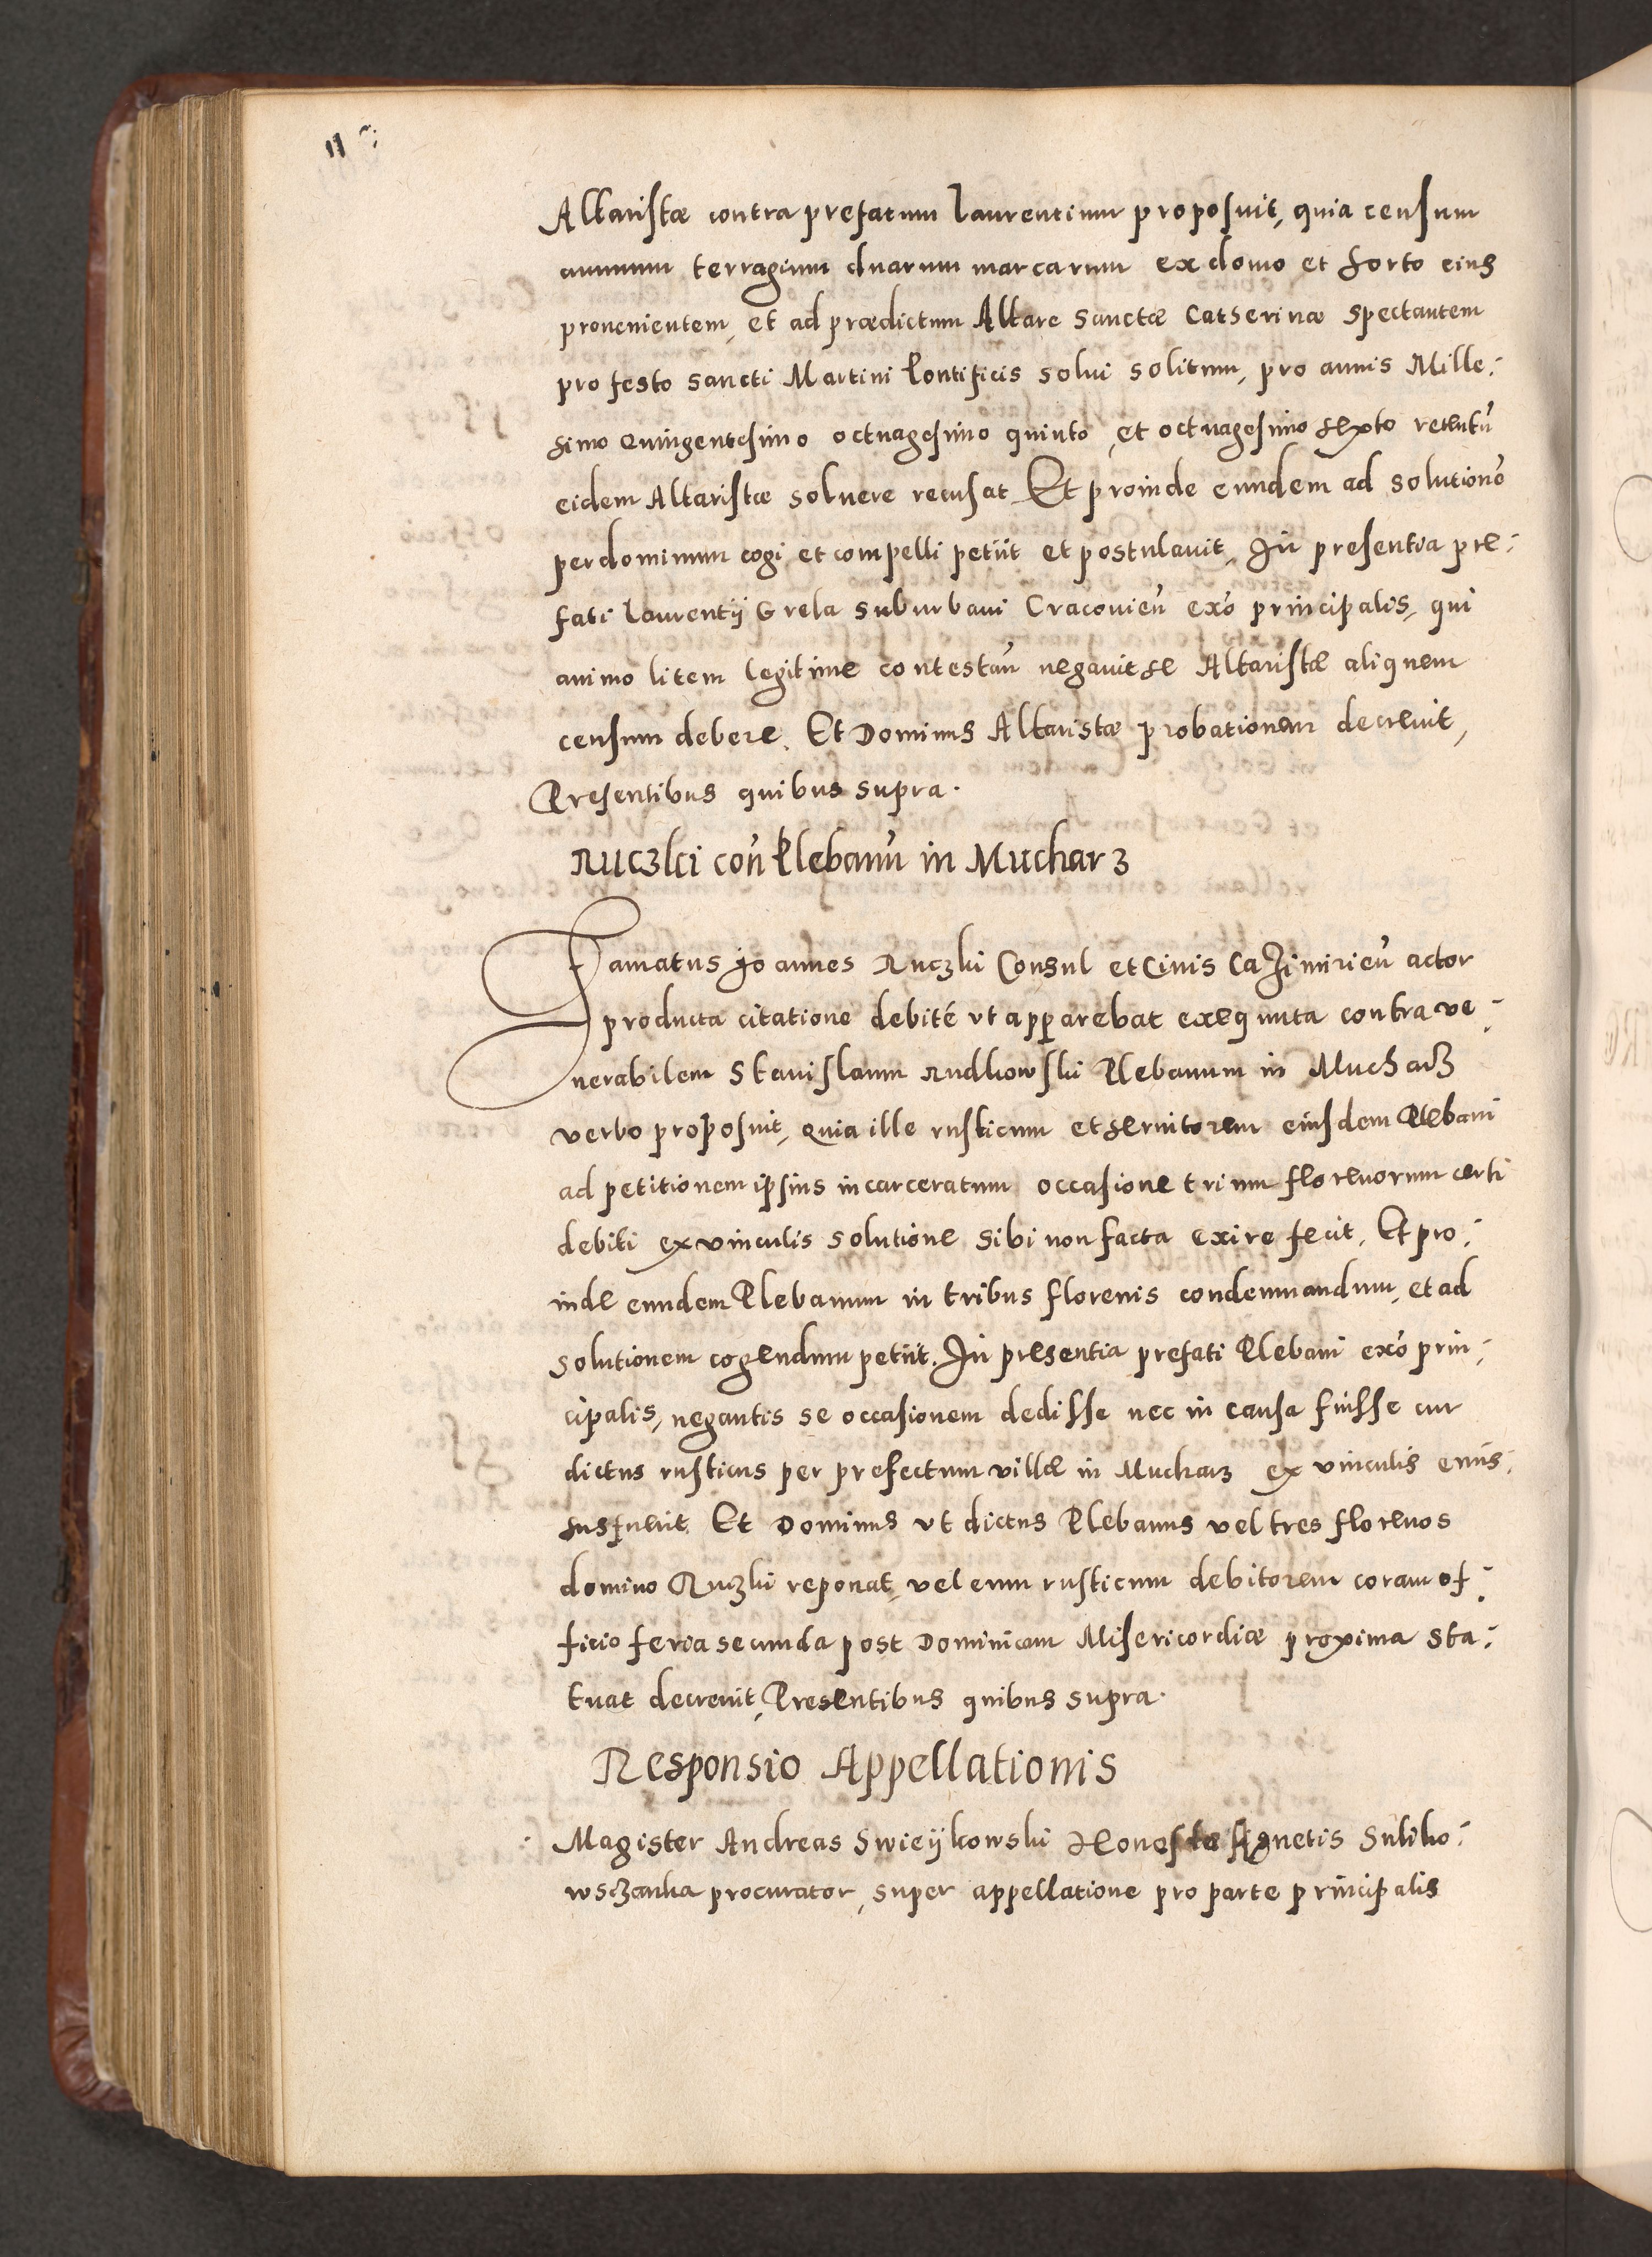 Altaristæ contra prefatum Laurentium proposuit, quia censum
annuum terragium duarum marcarum ex domo et horto eius
provenientem, et ad prædictum Altare Sanctæ Catherinæ spectantem
pro festo sancti Martini Pontificis solui solitum, pro annis Mille:
simo Quingentesimo octuagesimo quinto, et octuagesimo sexto retentũ
eidem Altaristæ soluere recusat Et proinde eundem ad solutionẽ
per dominum cogi et compelli petiit et postulavit, In presentia pre:
fati Laurentij Grela suburbani Cracovieñ exõ principalis, qui
animo litem legitime contestañ negavit se Altaristæ aliquem
censum debere. Et Dominus Altaristæ probationem decrevit,
Presentibus quibus supra.
Ruczki coñ Plebanũ in Mucharz
Famatus Joannes Ruczki Consul et Civis Cazimirieñ actor
producta citatione debité ut apparebat exequuta contra ve:
nerabilem Stanislaum Rudkowski Plebanum in Mucharz
verbo proposuit, quia ille rusticum et servitorem eiusdem Plebani
ad petitionem ipsius incarceratum occasione trium florenorum certi
debiti ex vinculis solutione sibi non facta exire fecit, Et pro:
inde eundem Plebanum in tribus florenis condemnandum, et ad
solutionem cogendum petiit. In presentia prefati Plebani exõ prin:
cipalis, negantis se occasionem dedisse nec in causa fuisse cur
dictus rusticus per prefectum villæ in Mucharz ex vinculis emis:
sus fuerit Et Dominus ut dictus Plebanus vel tres florenos
domino Ruczki reponat, vel eum rusticum debitorem coram of:
ficio feria secunda post Dominicam Misericordiæ proxima sta:
tuat decrevit, Presentibus quibus supra.
Responsio Appellationis
Magister Andreas Swieijkowski Honestæ Agnetis Sulko:
wsczanka procurator, super appellatione pro parte principalis